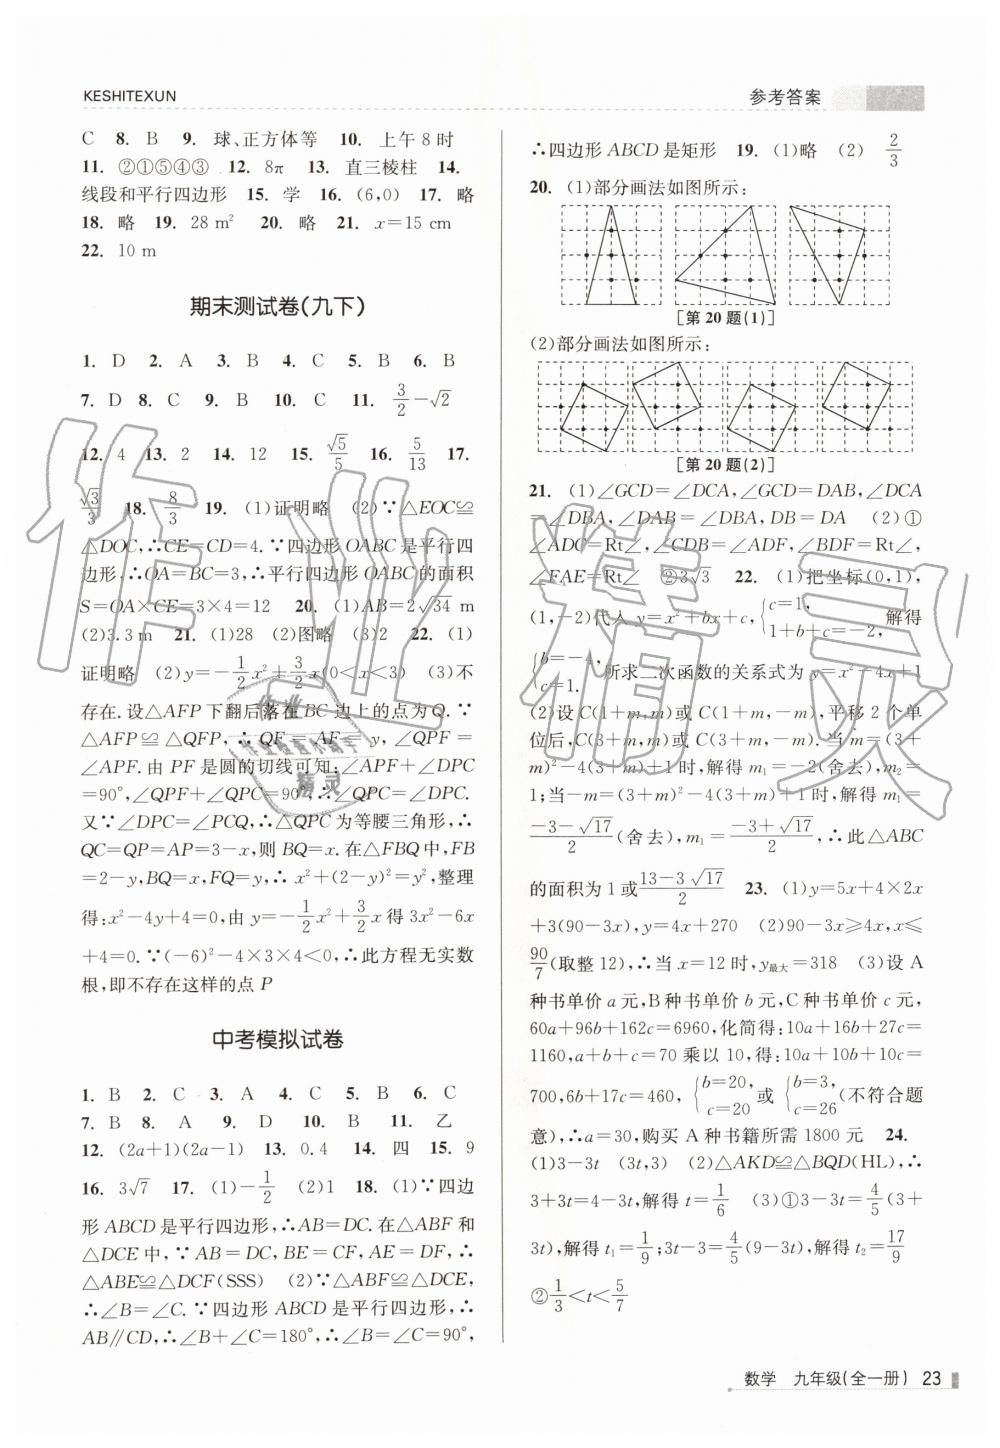 KESHITEXUN
参考答案
C 8. B 9. 球、正方体等 10. 上午8时
11. ②①⑤④③ 12. 8π 13. 直三棱柱 14.
线段和平行四边形 15. 学 16. (6,0) 17. 略
18. 略 19. 28 m² 20. 略 21. x=15 cm
22. 10 m
期末测试卷(九下)
1. D 2. A 3. B 4. C 5. B 6. B
7. D 8. C 9. B 10. C 11. 3/2-√2
12. 4 13. 2 14. 12 15. √5/5 16. 5/13 17.
√3/3 18. 8/3 19. (1)证明略 (2)∵△EOC≌
△DOC,∴CE=CD=4.∵四边形OABC是平行四
边形,∴OA=BC=3,∴平行四边形OABC的面积
S=OA×CE=3×4=12 20. (1)AB=2√34 m
(2)3.3 m 21. (1)28 (2)图略 (3)2 22. (1)
证明略 (2)y=-1/2x²+3/2x(0<x<3) (3)不
存在.设△AFP下翻后落在BC边上的点为Q.∵
△AFP≌△QFP,∴QF=AF=y,∠QPF=
∠APF.由PF是圆的切线可知:∠APF+∠DPC
=90°,∠QPF+∠QPC=90°,∴∠QPC=∠DPC.
又∵∠DPC=∠PCQ,∴△QPC为等腰三角形,∴
QC=QP=AP=3-x,则BQ=x.在△FBQ中,FB
=2-y,BQ=x,FQ=y,∴x²+(2-y)²=y²,整理
得:x²-4y+4=0,由y=-1/2x²+3/2x得3x²-6x
+4=0.∵(-6)²-4×3×4<0,∴此方程无实数
根,即不存在这样的点P
中考模拟试卷
1. B 2. C 3. A 4. C 5. B 6. C
7. B 8. A 9. D 10. B 11. 乙
12. (2a+1)(2a-1) 13. 0.4 14. 四 15. 9
16. 3√7 17. (1)-1/2 (2)1 18. (1)∵四边
形ABCD是平行四边形,∴AB=DC.在△ABF和
△DCE中,∵AB=DC,BE=CF,AE=DF,∴
△ABE≌△DCF(SSS) (2)∵△ABF≌△DCE,
∴∠B=∠C.∵四边形ABCD是平行四边形,∴
AB∥CD,∴∠B+∠C=180°,∴∠B=∠C=90°,
∴四边形ABCD是矩形 19. (1)略 (2) 2/3
20. (1)部分画法如图所示:
[第20题(1)]
(2)部分画法如图所示:
[第20题(2)]
21. (1)∠GCD=∠DCA,∠GCD=DAB,∠DCA
=∠DBA,∠DAB=∠DBA,DB=DA (2)①
∠ADC=Rt∠,∠CDB=∠ADF,∠BDF=Rt∠,
∠FAE=Rt∠ ②3√3 22. (1)把坐标(0,1),
(1,-2)代入y=x²+bx+c,{c=1, 1+b+c=-2, 解得
{b=-4, c=1. 所求二次函数的关系式为y=x²-4x+1
(2)设C(1+m,m)或C(1+m,-m),平移2个单
位后,C(3+m,m)或C(3+m,-m).当m=(3+
m)²-4(3+m)+1时,解得m₁=-2(舍去),m₂=
1;当-m=(3+m)²-4(3+m)+1时,解得m₁=
(-3-√17)/2(舍去),m₁=(-3+√17)/2,∴此△ABC
的面积为1或(13-3√17)/2 23. (1)y=5x+4×2x
+3(90-3x),y=4x+270 (2)90-3x≥4x,x≤
90/7(取整12),∴当x=12时,y最大=318 (3)设A
种书单价a元,B种书单价b元,C种书单价c元,
60a+96b+162c=6960,化简得:10a+16b+27c=
1160,a+b+c=70乘以10,得:10a+10b+10c=
700,6b+17c=460,{b=20, c=20 或 {b=3, c=26 (不符合题
意),∴a=30,购买A种书籍所需1800元 24.
(1)3-3t (3t,3) (2)△AKD≌△BQD(HL),∴
3+3t=4-3t,解得t=1/6 (3)①3-3t=4/5(3+
3t),解得t₁=1/9;3t-3=4/5(9-3t),解得t₂=17/9
②1/3<t<5/7
数学 九年级(全一册) 23
作业精灵